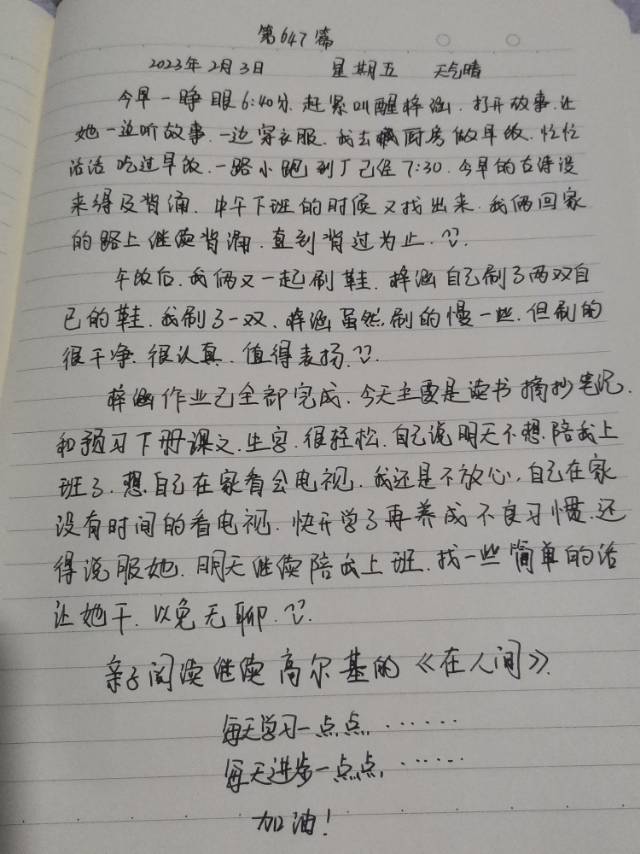 第647篇
2023年2月3日 星期五 天气晴
今早一睁眼6:40分.赶紧叫醒梓涵.打开故事.让
她一边听故事.一边穿衣服.我去厨房做早饭.忙忙
活活吃过早饭.一路小跑到了已经7:30.今早的古诗没
来得及背诵.中午下班的时候又找出来.我俩回家
的路上继续背诵.直到背过为止.
午饭后.我俩又一起刷鞋.梓涵自己刷了两双自
己的鞋.我刷了一双.梓涵虽然刷的慢一些.但刷的
很干净.很认真.值得表扬.
梓涵作业已全部完成.今天主要是读书摘抄笔记.
和预习下册课文.生字.很轻松.自己说明天不想陪我上
班了.想自己在家看会电视.我还是不放心.自己在家
没有时间的看电视.快开学了再养成不良习惯.还
得说服她.明天继续陪我上班.找一些简单的活
让她干.以免无聊.
亲子阅读继续高尔基的《在人间》.
每天学习一点点.……
每天进步一点点.……
加油!